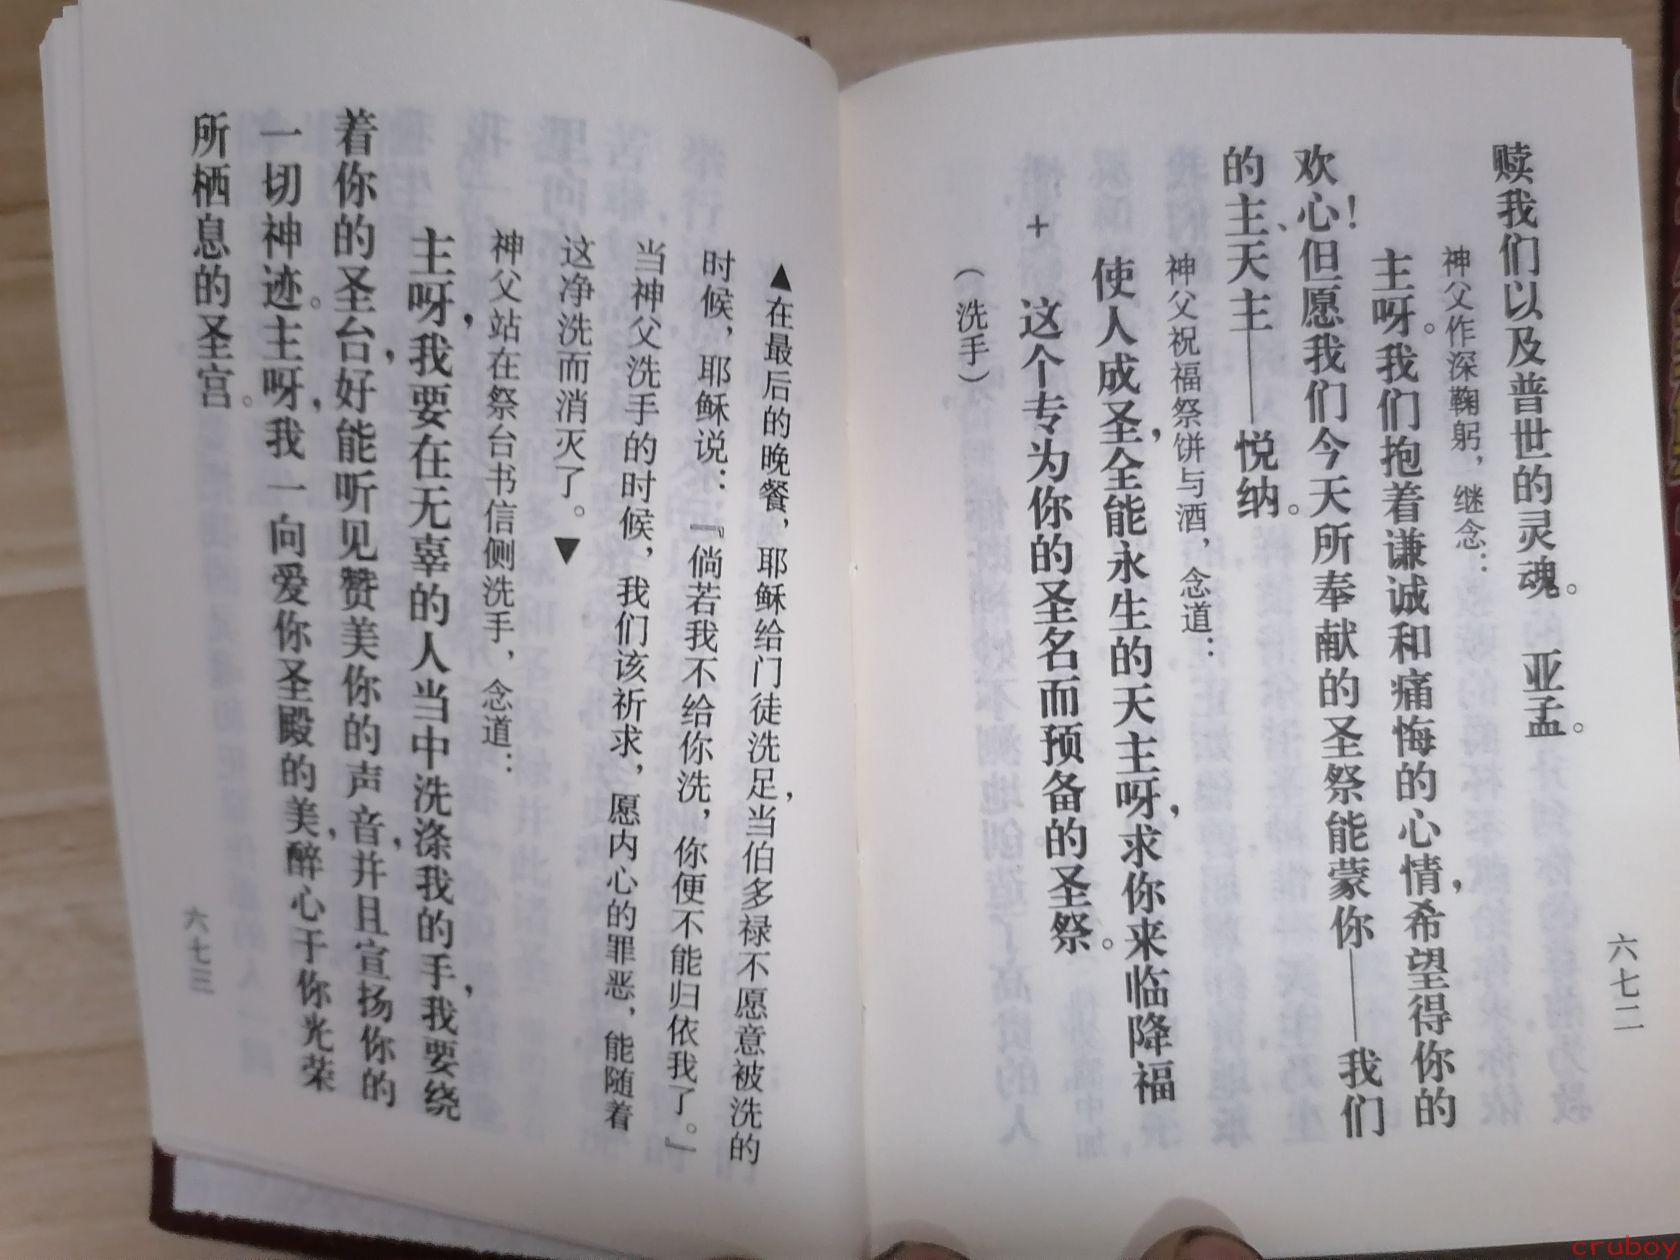 六七二
赎我们以及普世的灵魂。 亚孟。
神父作深鞠躬，继念：
主呀。我们抱着谦诚和痛悔的心情，希望得你的
欢心！但愿我们今天所奉献的圣祭能蒙你——我们
的主、天主——悦纳。
神父祝福祭饼与酒，念道：
使人成圣，全能永生的天主呀，求你来临降福
+ 这个专为你的圣名而预备的圣祭。
（洗手）
▲在最后的晚餐，耶稣给门徒洗足，当伯多禄不愿意被洗的
时候，耶稣说：『倘若我不给你洗，你便不能归依我了。』
当神父洗手的时候，我们该祈求，愿内心的罪恶，能随着
这净洗而消灭了。▼
神父站在祭台书信侧洗手，念道：
主呀，我要在无辜的人当中洗涤我的手，我要绕
着你的圣台，好能听见赞美你的声音，并且宣扬你的
一切神迹。主呀，我一向爱你圣殿的美，醉心于你光荣
所栖息的圣宫。
六七三
cruboy